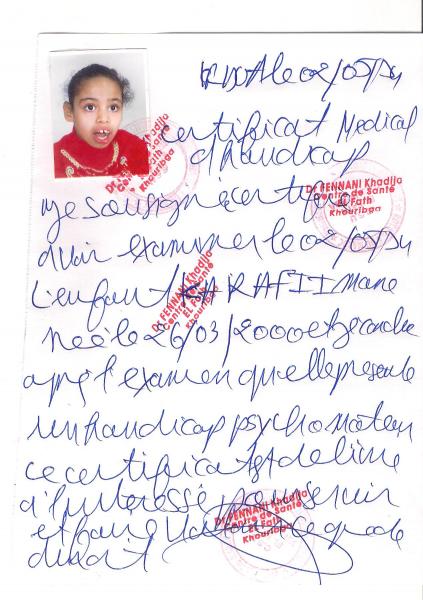 le 02/05/
Certificat Medical
d'handicap
Dr FENNANI Khadija
Centre de Santé
El Fath
Khouribga
Dr FENNANI Khadija
Centre de Santé
El Fath
Khouribga
Je soussigne certifie
avoir examiner le 02/05/
Dr FENNANI Khadija
Centre de Santé
El Fath
Khouribga
L'enfant KHARAFI Imane
neè le 26/03/2000 et je conclu
apre l'examen qu'elle presente
un handicap psychomoteur
ce certificat est delivre
a l'interessé pour servir
et faire valoir ce que de
droit
Dr FENNANI Khadija
Centre de Santé
El Fath
Khouribga